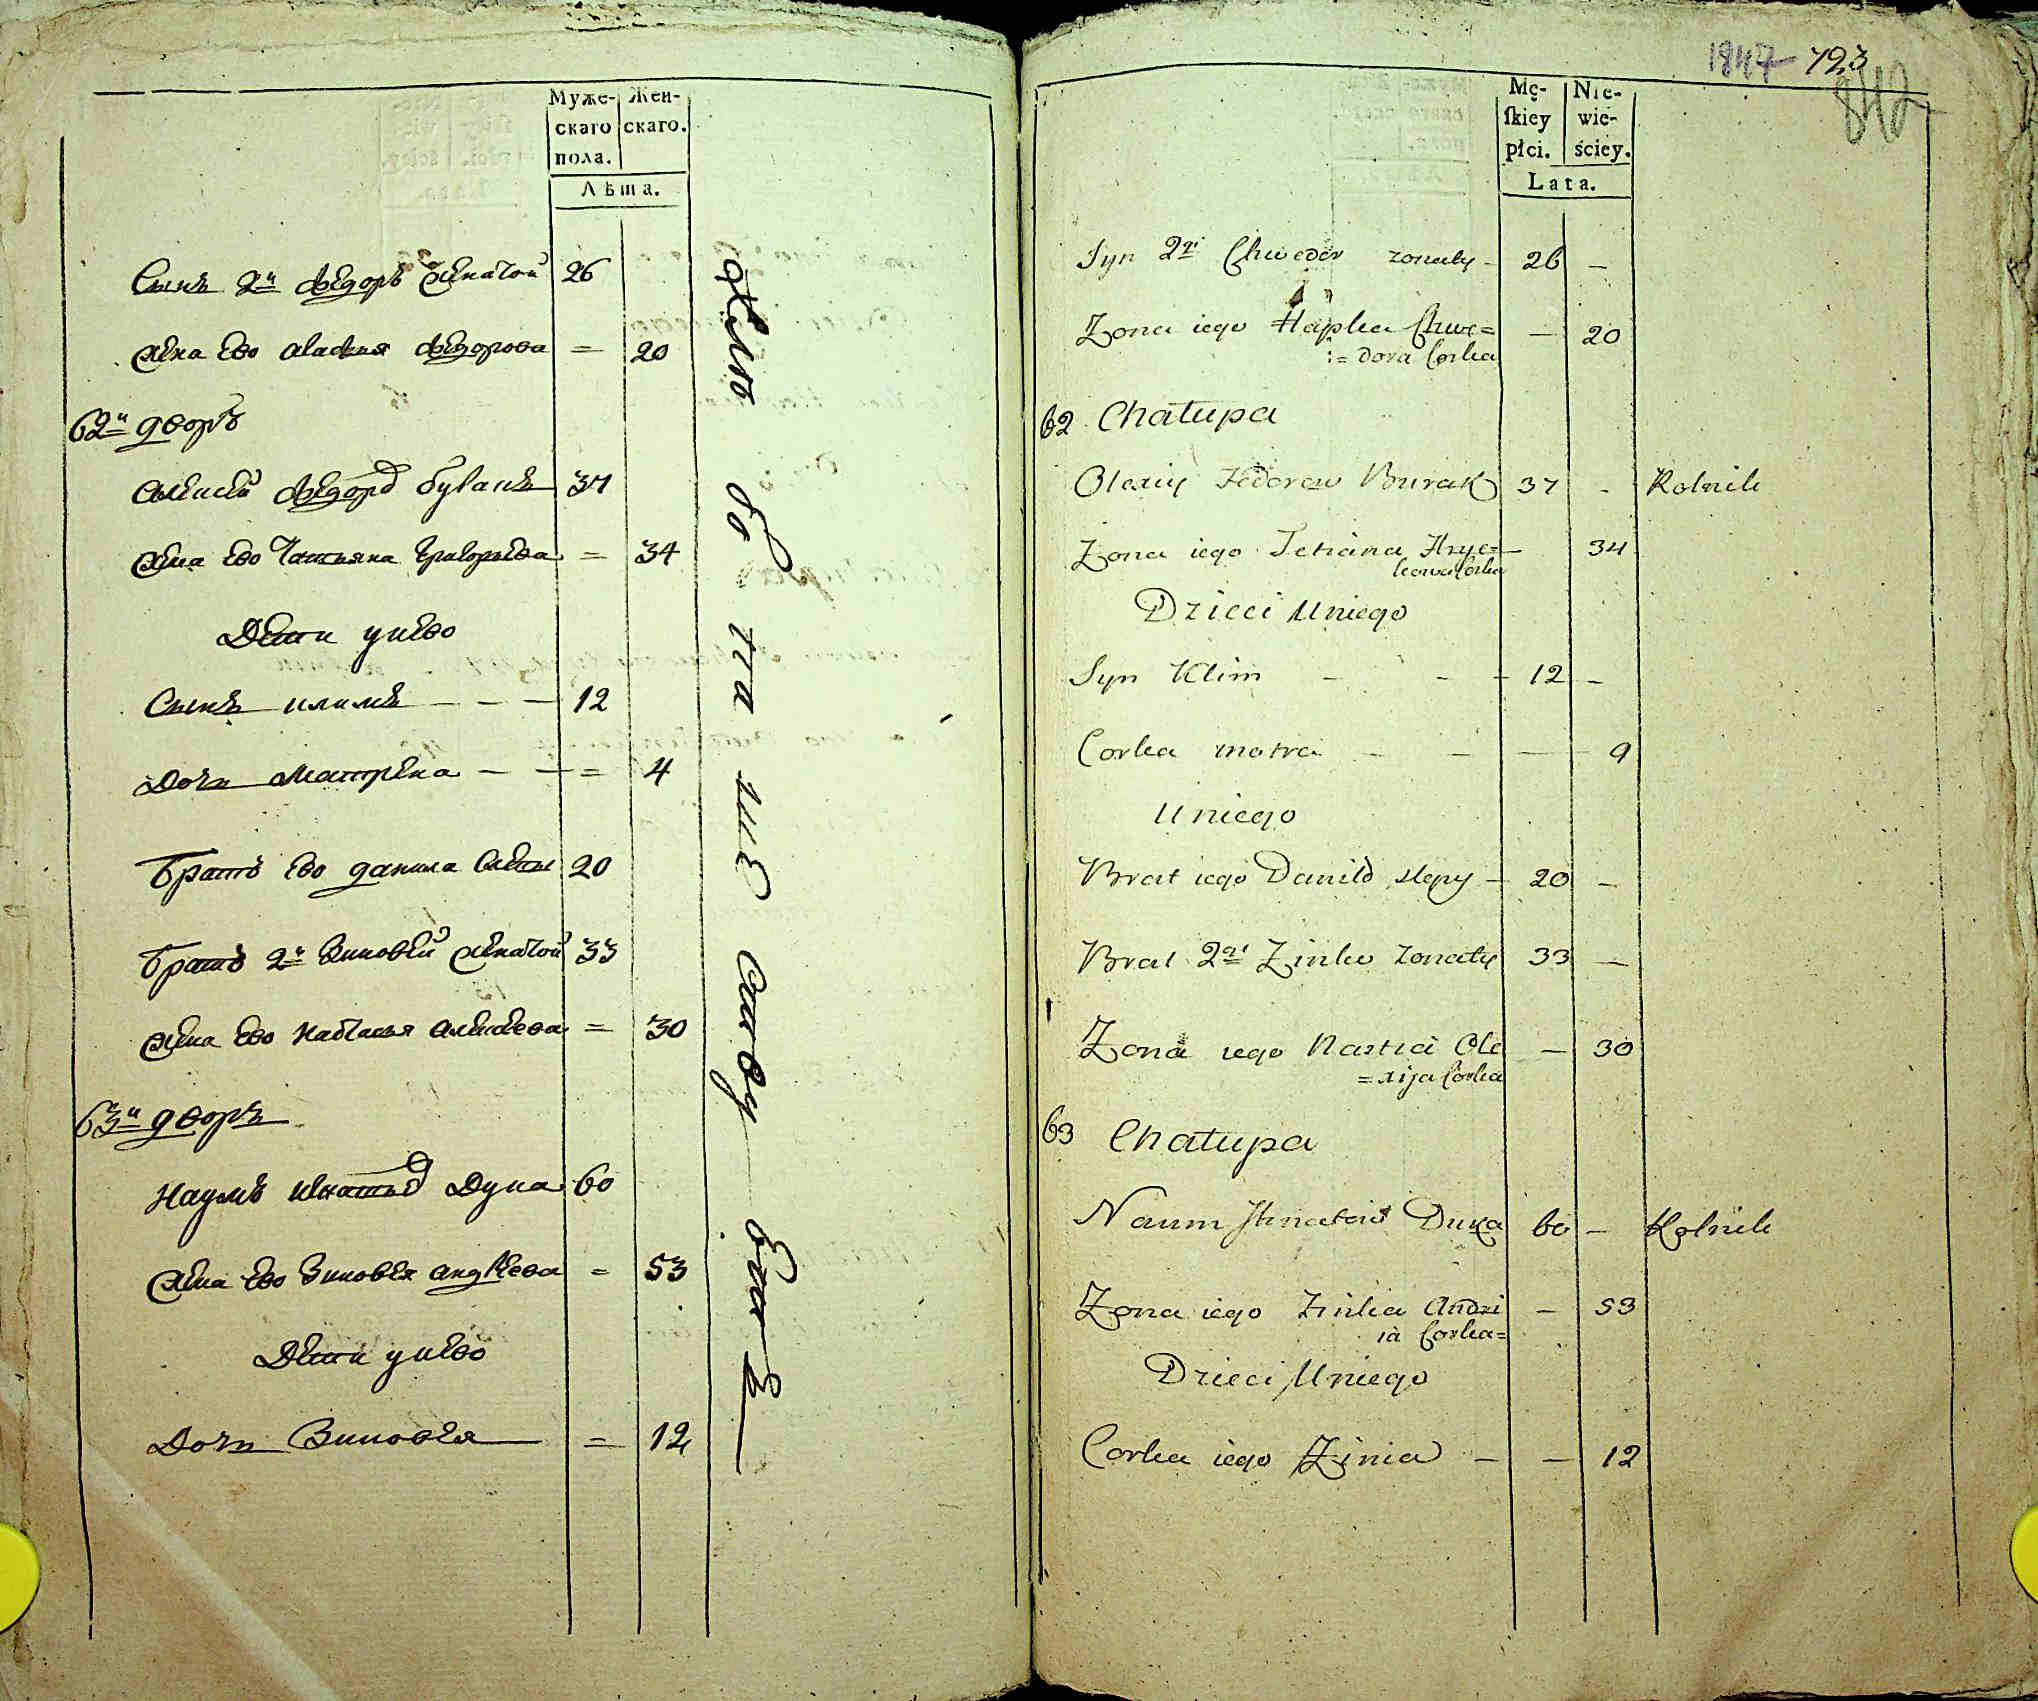 Муже- Жен-
скаго скаго.
пола.
Лѣта.
Сынъ 2й Федоръ женатой 26
жена ево Агафия Федорова = 20
62й дворъ
Алексей Федоров Буракъ 37
жена ево Татьяна Григорьева = 34
Дети у нево
Сынъ климъ — — — 12
Дочь Матрена — — = 4
Братъ ево данила слепы 20
братъ 2й Зиновей женатой 33
жена ево Настасья Алексеева = 30
63й дворъ
Наумъ Игнатьев Дука 60
жена ево Зиновея андреева = 53
Дети у нево
Дочь Зиновея = 12
1847 723
842
Mę- Nie-
ſkiey wie-
płci. ściey.
Lata.
Syn 2gi Chwedor zonaty - 26 —
Zona iego Hapka Chwe= — 20
:= dora Corka
62 Chałupa
Olexiy Fedorow Burak 37 - Rolnik
Zona iego Tetiana Hrye= — 34
Dzieci Uniego
Syn Klim - - - 12 —
Corka motra — — — 9
Uniego
Brat iego Daniło slepy — 20 —
Brat 2gi Zinko zonaty 33 —
Zona iego Nastia Ole — 30
= xija Corka
63 Chałupa
Naum Hnatow Duka 60 — Rolnik
Zona iego Zinka Andri — 53
ia Corka=
Dzieci Uniego
Corka iego Zinia — — 12